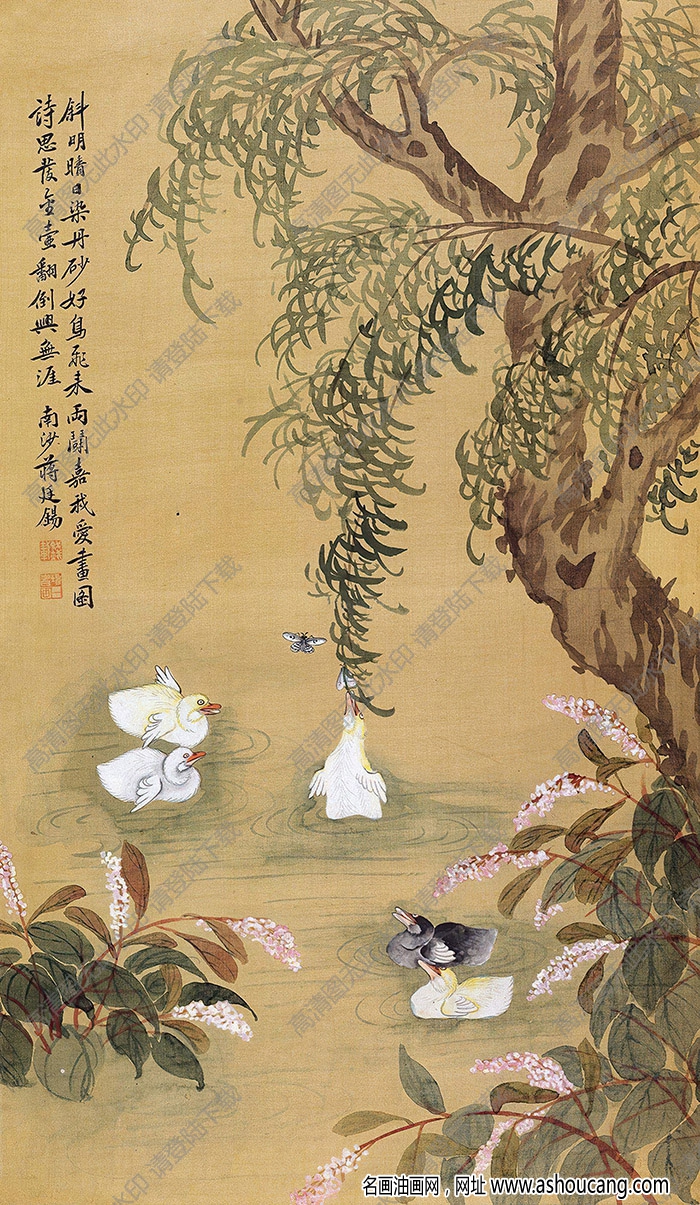 斜明晴日染丹砂好鳥飛来兩鬭嘉我愛畫圖
詩思發金壺翻倒興無涯
南沙蔣廷錫
高清图无此水印 请登陆下载
名画油画网，网址 www.ashoucang.com